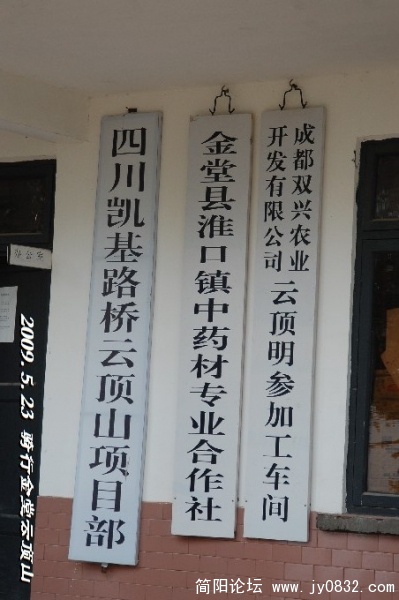 四川凯基路桥云顶山项目部
金堂县淮口镇中药材专业合作社
成都双兴农业
开发有限公司
云顶明参加工车间
办公室
2009.5.23 骑行金堂云顶山
简阳论坛 www.jy0832.com